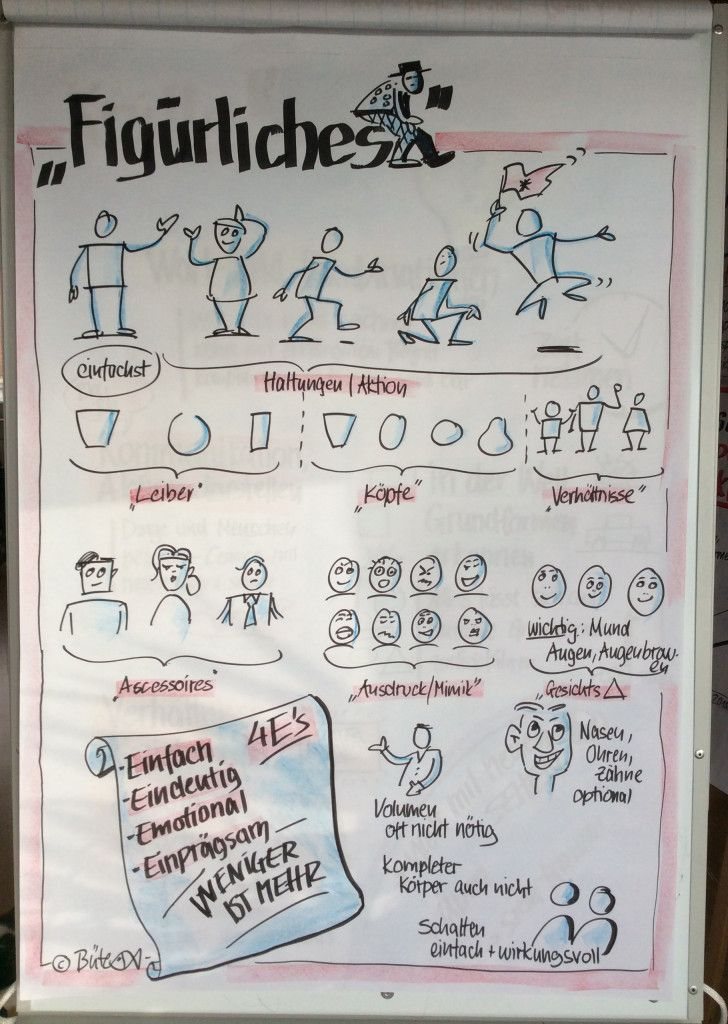 „Figürliches"
einfachst
Haltungen / Aktion
„Leiber"
„Köpfe"
„Verhältnisse"
„Ascessoires"
„Ausdruck/Mimik"
wichtig: Mund
Augen, Augenbrau-
en
„Gesichts △
4E's
- Einfach
- Eindeutig
- Emotional
- Einprägsam
WENIGER
IST MEHR
Nasen,
Ohren,
Zähne
optional
Volumen
oft nicht nötig
Kompleter
Körper auch nicht
Schatten
einfach + wirkungsvoll